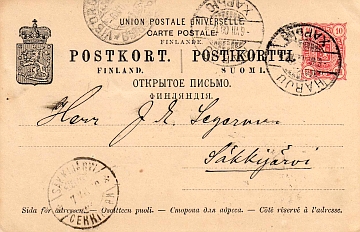 UNION POSTALE UNIVERSELLE
CARTE POSTALE
FINLANDE
POSTKORT. POSTIKORTTI.
FINLAND. SUOMI.
ОТКРЫТОЕ ПИСЬМО.
ФИНЛЯНДІЯ.
10
HARJU
Herr J. E. Segervu
Säkkijärvi
SÄKKIJÄRVI
Sida för adressen. – Osoitteen puoli. – Сторона для адреса. – Côté réservé à l'adresse.